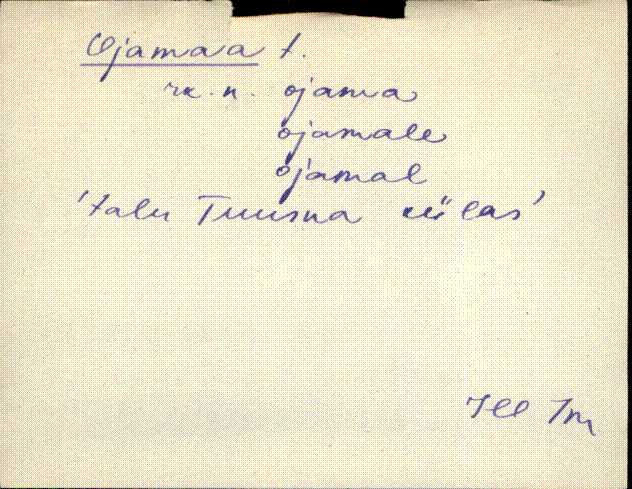 Ojamaa t.
rk. n. ojama
ojamale
ojamal
'talu Tuusna külas'